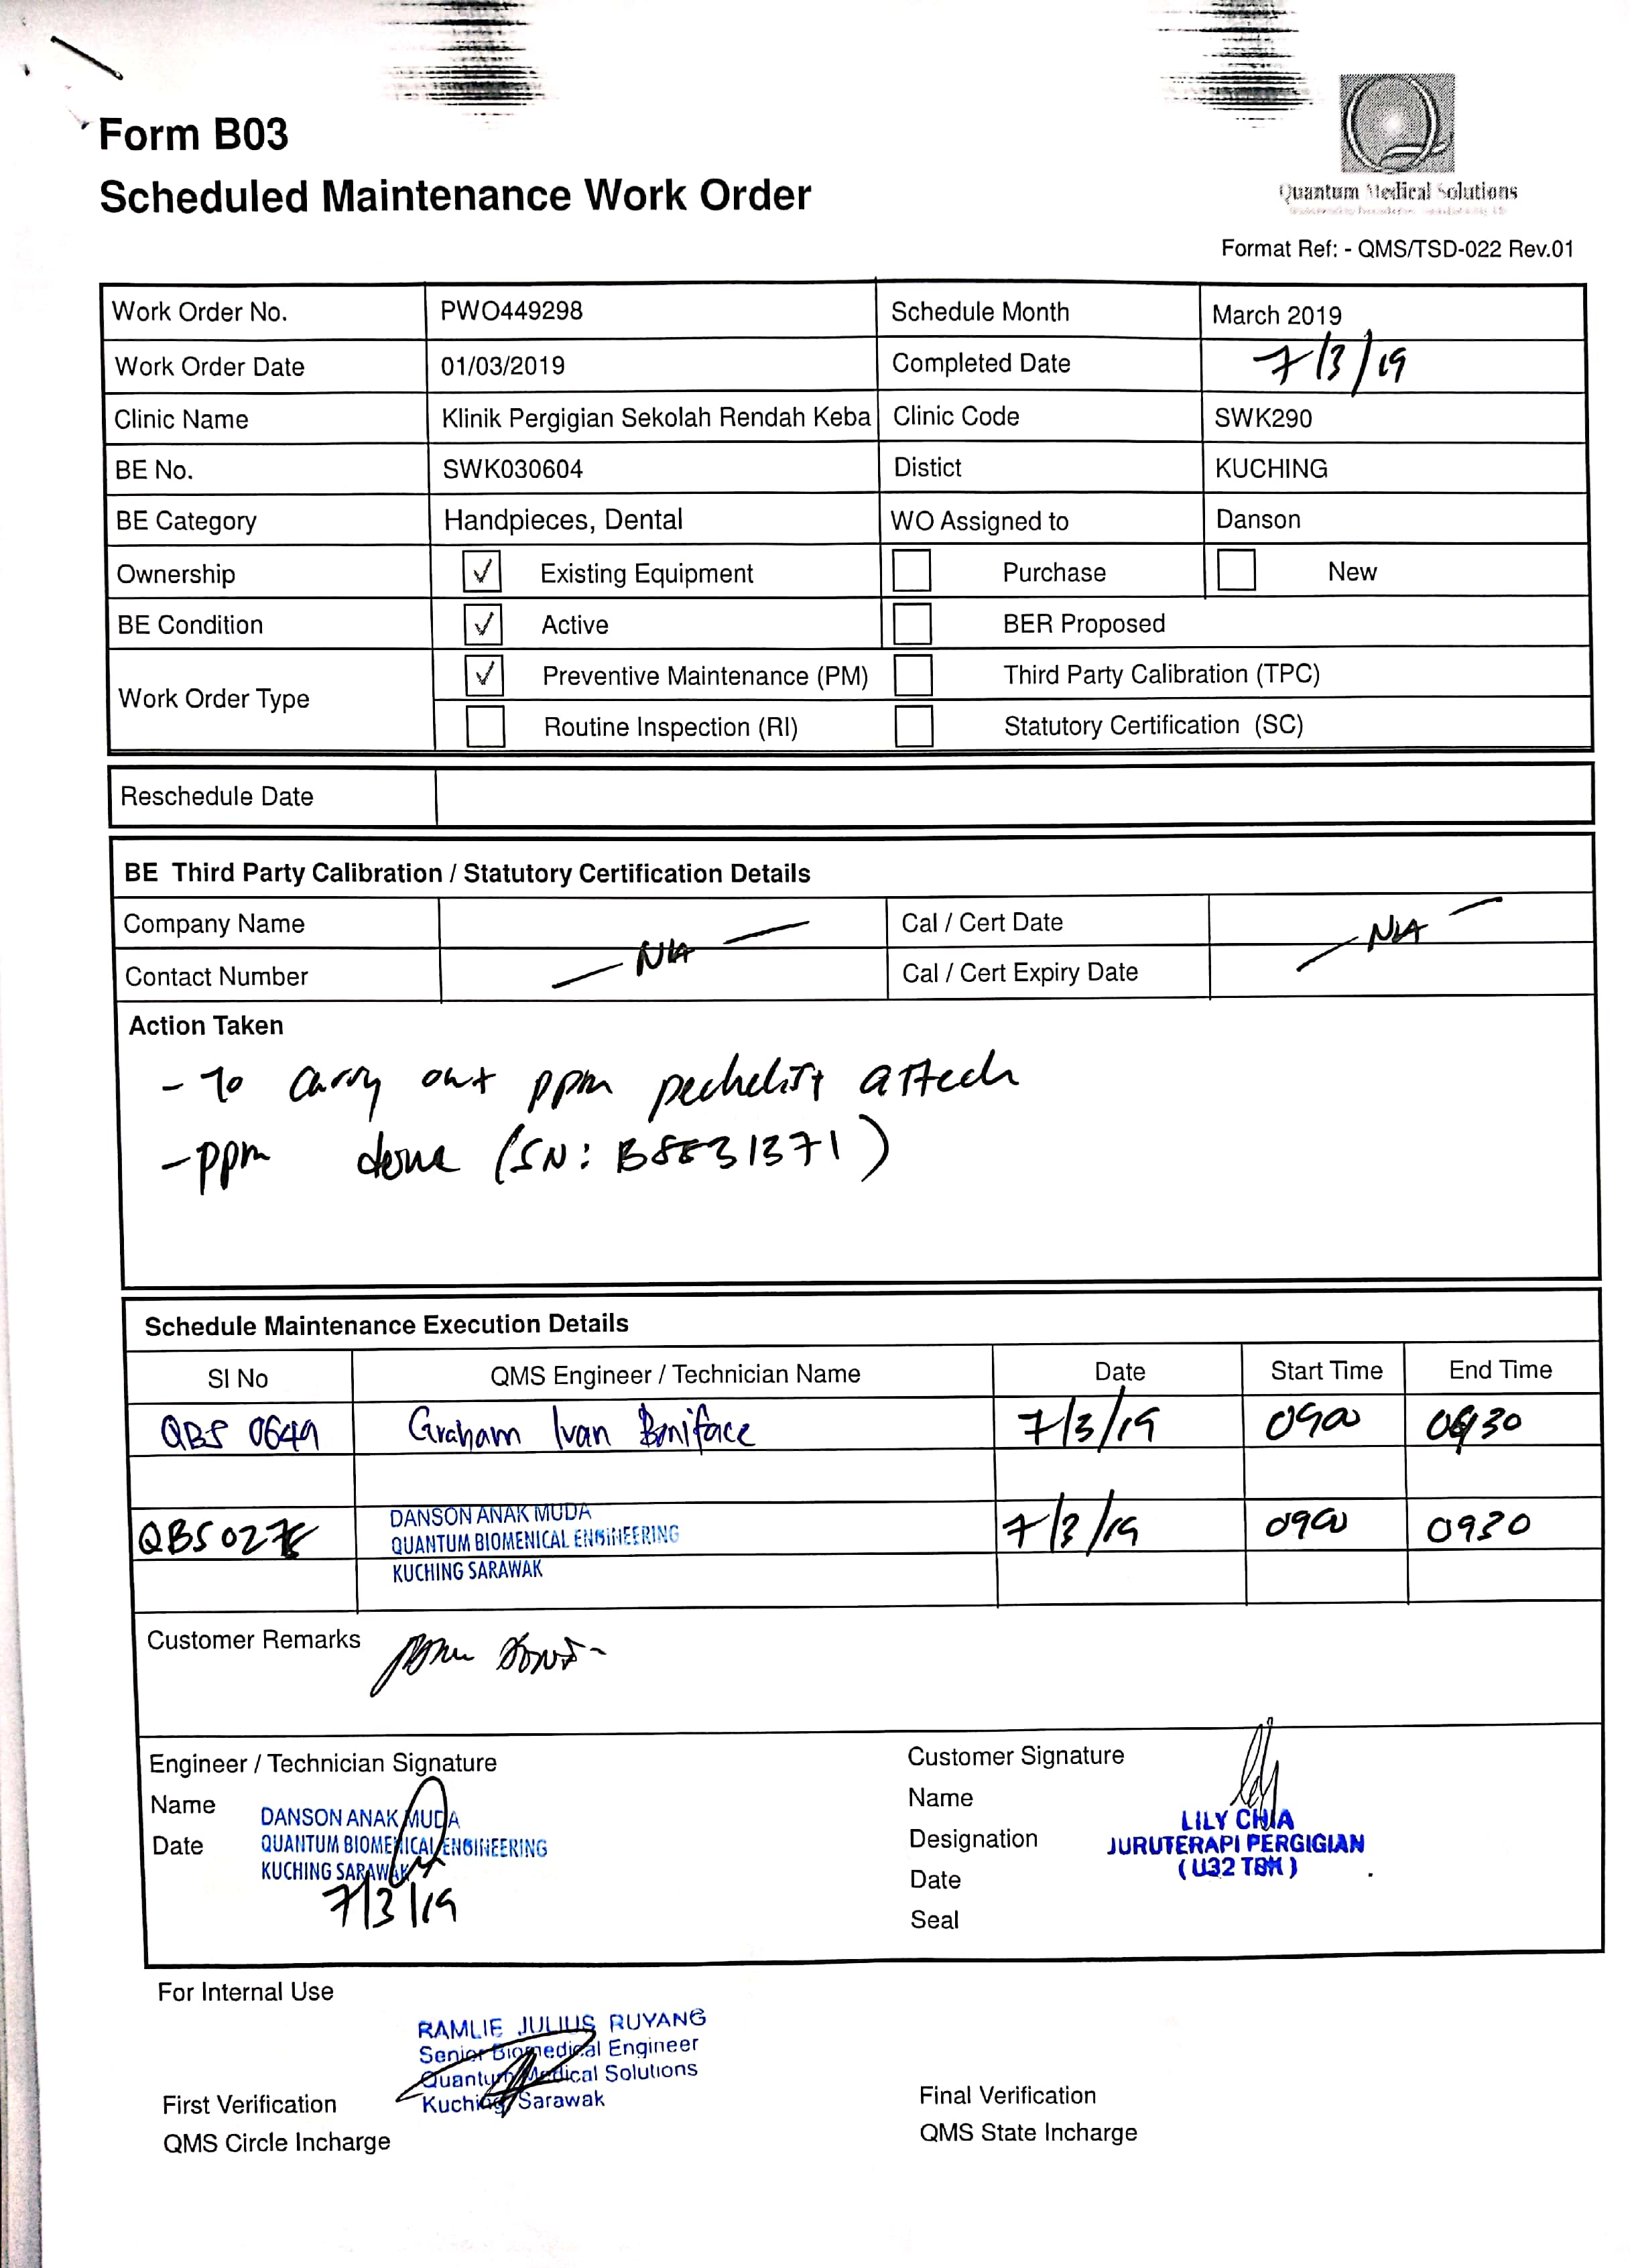 Form B03
Scheduled Maintenance Work Order
Quantum Medical Solutions
Format Ref: - QMS/TSD-022 Rev.01
Work Order No. PWO449298 Schedule Month March 2019
Work Order Date 01/03/2019 Completed Date 7/3/19
Clinic Name Klinik Pergigian Sekolah Rendah Keba Clinic Code SWK290
BE No. SWK030604 Distict KUCHING
BE Category Handpieces, Dental WO Assigned to Danson
Ownership ✓ Existing Equipment Purchase New
BE Condition ✓ Active BER Proposed
Work Order Type ✓ Preventive Maintenance (PM) Third Party Calibration (TPC)
Routine Inspection (RI) Statutory Certification (SC)
Reschedule Date
BE Third Party Calibration / Statutory Certification Details
Company Name Cal / Cert Date
— NA — — NA —
Contact Number Cal / Cert Expiry Date
Action Taken
- To carry out ppm
- ppm done (SN:
Schedule Maintenance Execution Details
SI No QMS Engineer / Technician Name Date Start Time End Time
QBS 0649 Graham Ivan Boniface 7/3/19 0900 0930
DANSON ANAK MUDA
QUANTUM BIOMENICAL ENGINEERING
KUCHING SARAWAK
7/3/19 0900 0930
Customer Remarks
Engineer / Technician Signature
Name
Date
DANSON ANAK MUDA
QUANTUM BIOMENICAL ENGINEERING
KUCHING SARAWAK
7/3/19
Customer Signature
Name
Designation
Date
Seal
LILY CHIA
JURUTERAPI PERGIGIAN
(U32 TBK)
For Internal Use
RAMLIE JULIUS RUYANG
Senior Biomedical Engineer
Quantum Medical Solutions
Kuching, Sarawak
First Verification
QMS Circle Incharge
Final Verification
QMS State Incharge